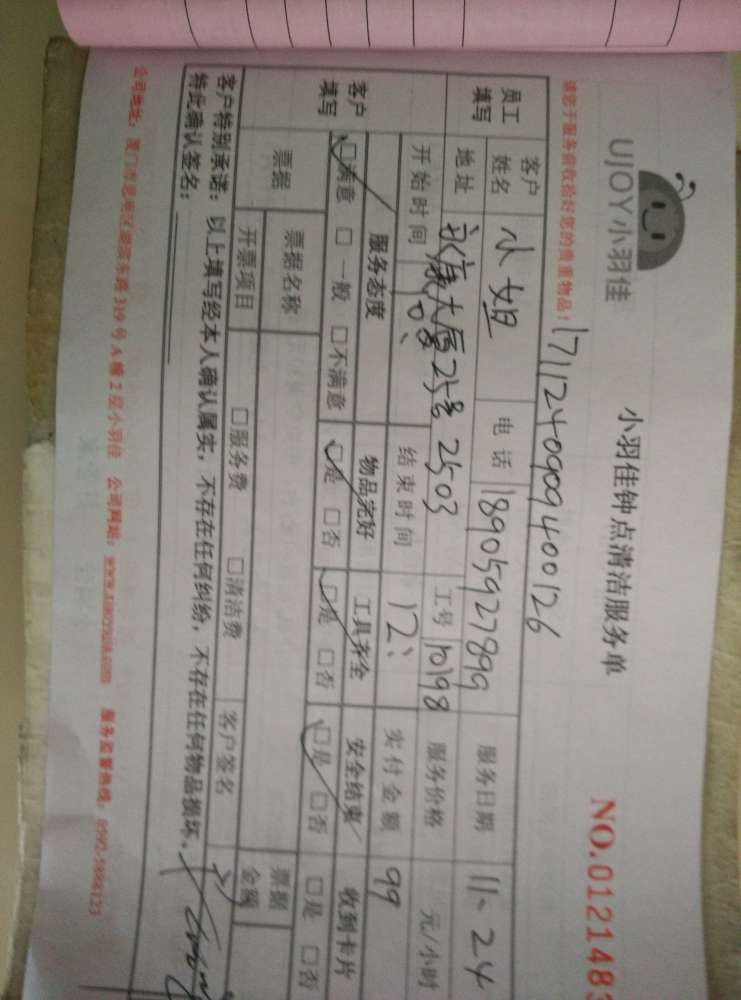 UJOY小羽佳
小羽佳钟点清洁服务单
NO.012148
请您于服务前收拾好您的贵重物品!
171124090940 0126
员工填写 客户姓名 小姐 电话 18905927899 服务日期 11、24
地址 永康大厦25号2503 工号 10198 服务价格 元/小时
开始时间 结束时间 12、 实付金额 99
客户填写 服务态度 物品完好 工具齐全 安全结束 收到卡片
☑满意 □一般 □不满意 ☑是 □否 ☑是 □否 ☑是 □否 □是 □否
票据 票据名称 票据金额
开票项目 □服务费 □清洁费 客户签名
客户特别承诺:以上填写经本人确认属实,不存在任何纠纷,不存在任何物品损坏,
特此确认签名:
公司地址:厦门市思明区湖滨东路319号A幢2层小羽佳 公司网站:www.xiaoyujia.com 服务监督热线:0592-5888123